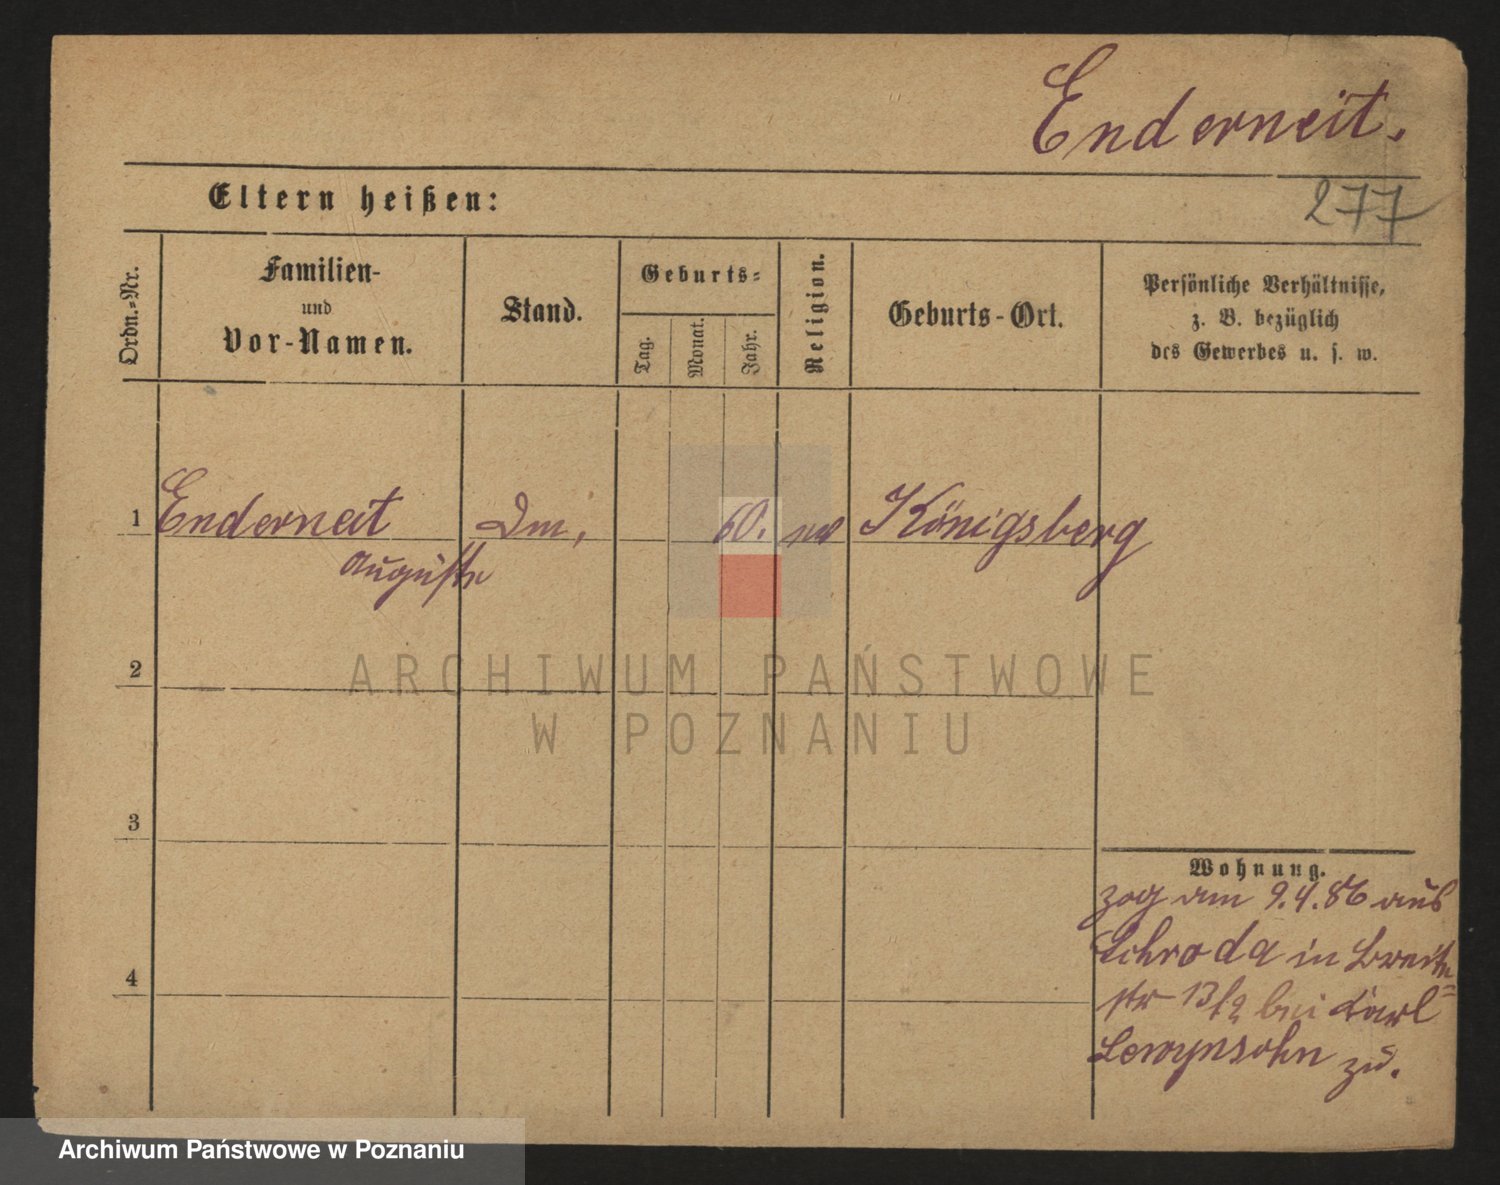 Enderneit.
Eltern heißen:
277
Ordn.-Nr.
Familien-
und
Vor-Namen.
Stand.
Geburts-
Tag.
Monat.
Jahr.
Religion.
Geburts-Ort.
Persönliche Verhältnisse,
z. B. bezüglich
des Gewerbes u. s. w.
1 Enderneit 60. Königsberg
Auguste
2
3
4
Wohnung.
zog am 9.4.86 aus
Schroda in Breite
str 13/2 bei Karl
Lewynsohn zu.
ARCHIWUM PAŃSTWOWE
W POZNANIU
Archiwum Państwowe w Poznaniu